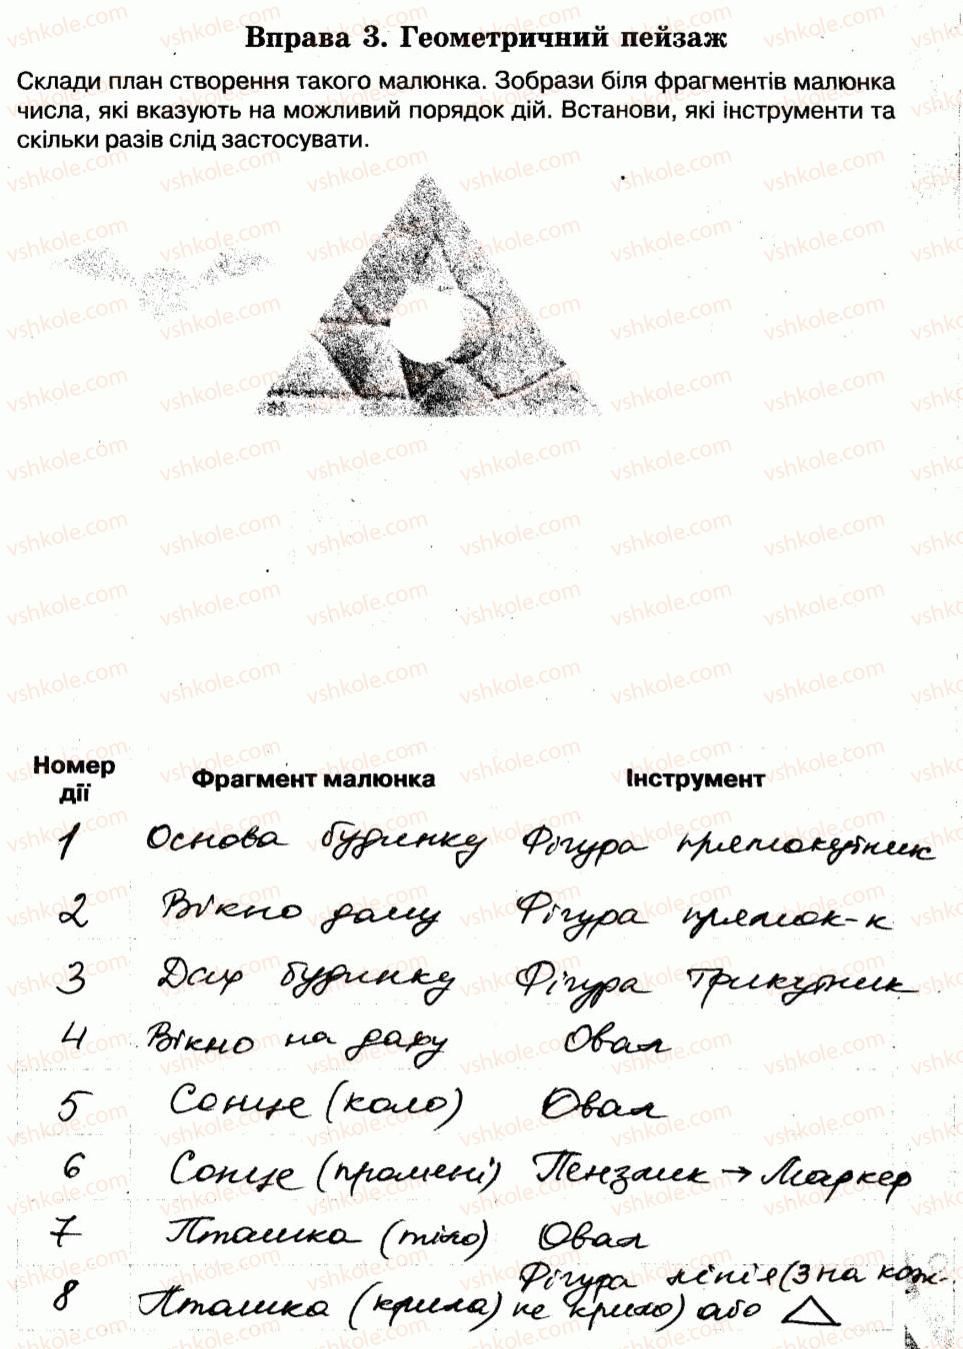 Вправа 3. Геометричний пейзаж
Склади план створення такого малюнка. Зобрази біля фрагментів малюнка
числа, які вказують на можливий порядок дій. Встанови, які інструменти та
скільки разів слід застосувати.
Номер дії Фрагмент малюнка Інструмент
1 Основа будинку Фігура прямокутник
2 Вікно дому Фігура прямок-к
3 Дах будинку Фігура трикутник
4 Вікно на даху Овал
5 Сонце (коло) Овал
6 Сонце (промені) Пензлик → Маркер
7 Пташка (тіло) Овал
8 Пташка (крила) Фігура лінія (3 на кож-
не крило) або △